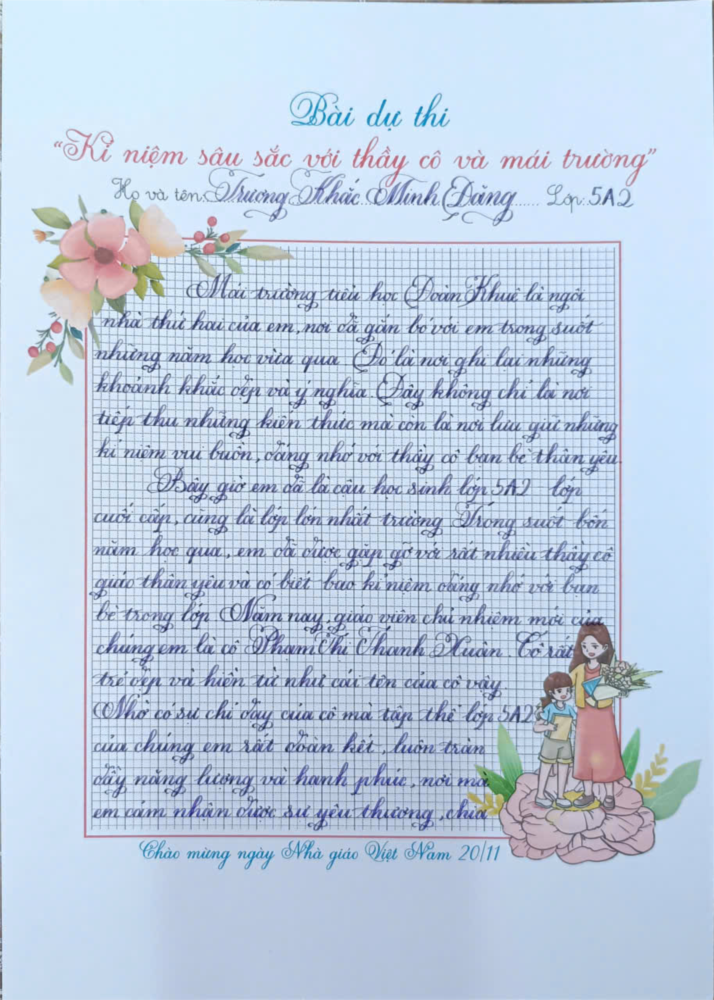 Bài dự thi
“Kỉ niệm sâu sắc với thầy cô và mái trường”
Họ và tên: Trương Khắc Minh Đăng...... Lớp: 5A2
Mái trường tiểu học Đoàn Khuê là ngôi
nhà thứ hai của em, nơi đã gắn bó với em trong suốt
những năm học vừa qua. Đó là nơi ghi lại những
khoảnh khắc đẹp và ý nghĩa. Đây không chỉ là nơi
tiếp thu những kiến thức mà còn là nơi lưu giữ những
kỉ niệm vui buồn, đáng nhớ với thầy cô bạn bè thân yêu.
Bây giờ em đã là cậu học sinh lớp 5A2 lớp
cuối cấp, cũng là lớp lớn nhất trường. Trong suốt bốn
năm học qua, em đã được gặp gỡ với rất nhiều thầy cô
giáo thân yêu và có biết bao kỉ niệm đáng nhớ với bạn
bè trong lớp. Năm nay, giáo viên chủ nhiệm mới của
chúng em là cô Phạm Thị Thanh Xuân. Cô rất
trẻ đẹp và hiền từ như cái tên của cô vậy.
Nhờ có sự chỉ dạy của cô mà tập thể lớp 5A2
của chúng em rất đoàn kết, luôn tràn
đầy năng lượng và hạnh phúc, nơi mà
em cảm nhận được sự yêu thương, chia
Chào mừng ngày Nhà giáo Việt Nam 20/11